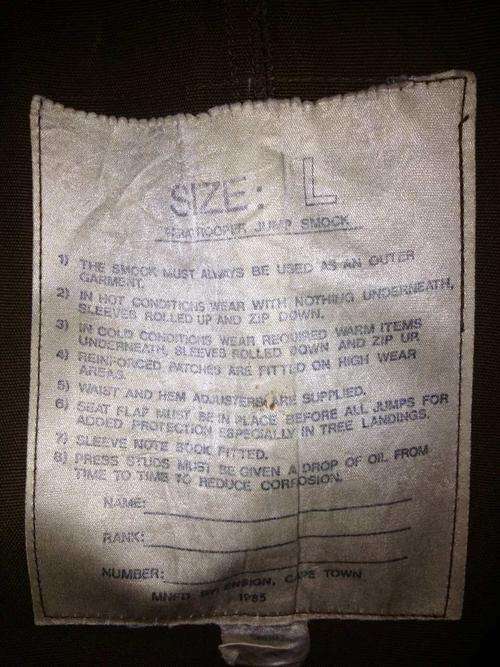 SIZE: L
JUMP SMOCK
1) THE SMOCK MUST ALWAYS BE USED AS AN OUTER
GARMENT.
2) IN HOT CONDITIONS WEAR WITH NOTHING UNDERNEATH,
SLEEVES ROLLED UP AND ZIP DOWN.
3) IN COLD CONDITIONS WEAR REQUIRED WARM ITEMS
UNDERNEATH, SLEEVES ROLLED DOWN AND ZIP UP.
4) REINFORCED PATCHES ARE FITTED ON HIGH WEAR
AREAS.
5) WAIST AND HEM ADJUSTERS ARE SUPPLIED.
6) SEAT FLAP MUST BE IN PLACE BEFORE ALL JUMPS FOR
ADDED PROTECTION ESPECIALLY IN TREE LANDINGS.
7) SLEEVE NOTE BOOK FITTED.
8) PRESS STUDS MUST BE GIVEN A DROP OF OIL FROM
TIME TO TIME TO REDUCE CORROSION.
NAME:
RANK:
NUMBER:
MNFD BY: ENSIGN, CAPE TOWN
1985